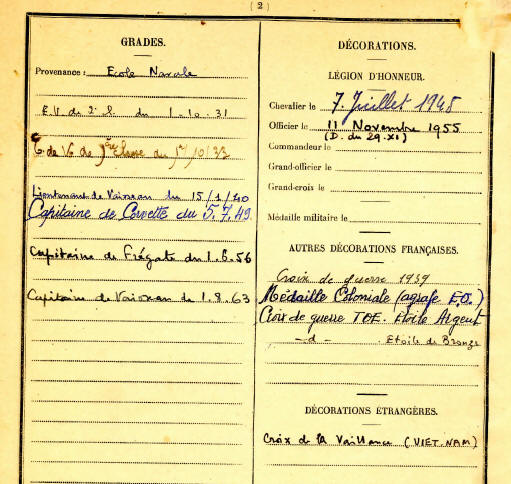 ( 2 )
GRADES.
Provenance : Ecole Navale
E.V. de 2e cl. du 1-10-31
E de V. de 1ère classe du 1/10/33
Lieutenant de Vaisseau du 15/1/40
Capitaine de Corvette du 5.7.49
Capitaine de Frégate du 1.6.56
Capitaine de Vaisseau du 1.8.63
DÉCORATIONS.
LÉGION D'HONNEUR.
Chevalier le 7. Juillet 1948
Officier le 11 Novembre 1955
(D. du 29.XI)
Commandeur le
Grand-officier le
Grand-croix le
Médaille militaire le
AUTRES DÉCORATIONS FRANÇAISES.
Croix de guerre 1939
Médaille Coloniale (agrafe E.O.)
Croix de guerre TOE. Etoile Argent
-d- Etoile de Bronze
DÉCORATIONS ÉTRANGÈRES.
Croix de la Vaillance (VIET-NAM)